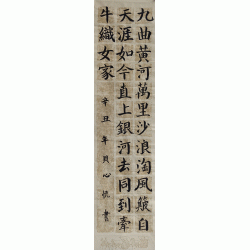 九曲黃河萬里沙浪淘風簸自
天涯如今直上銀河去同到牽
牛織女家
辛丑年貝心悅書